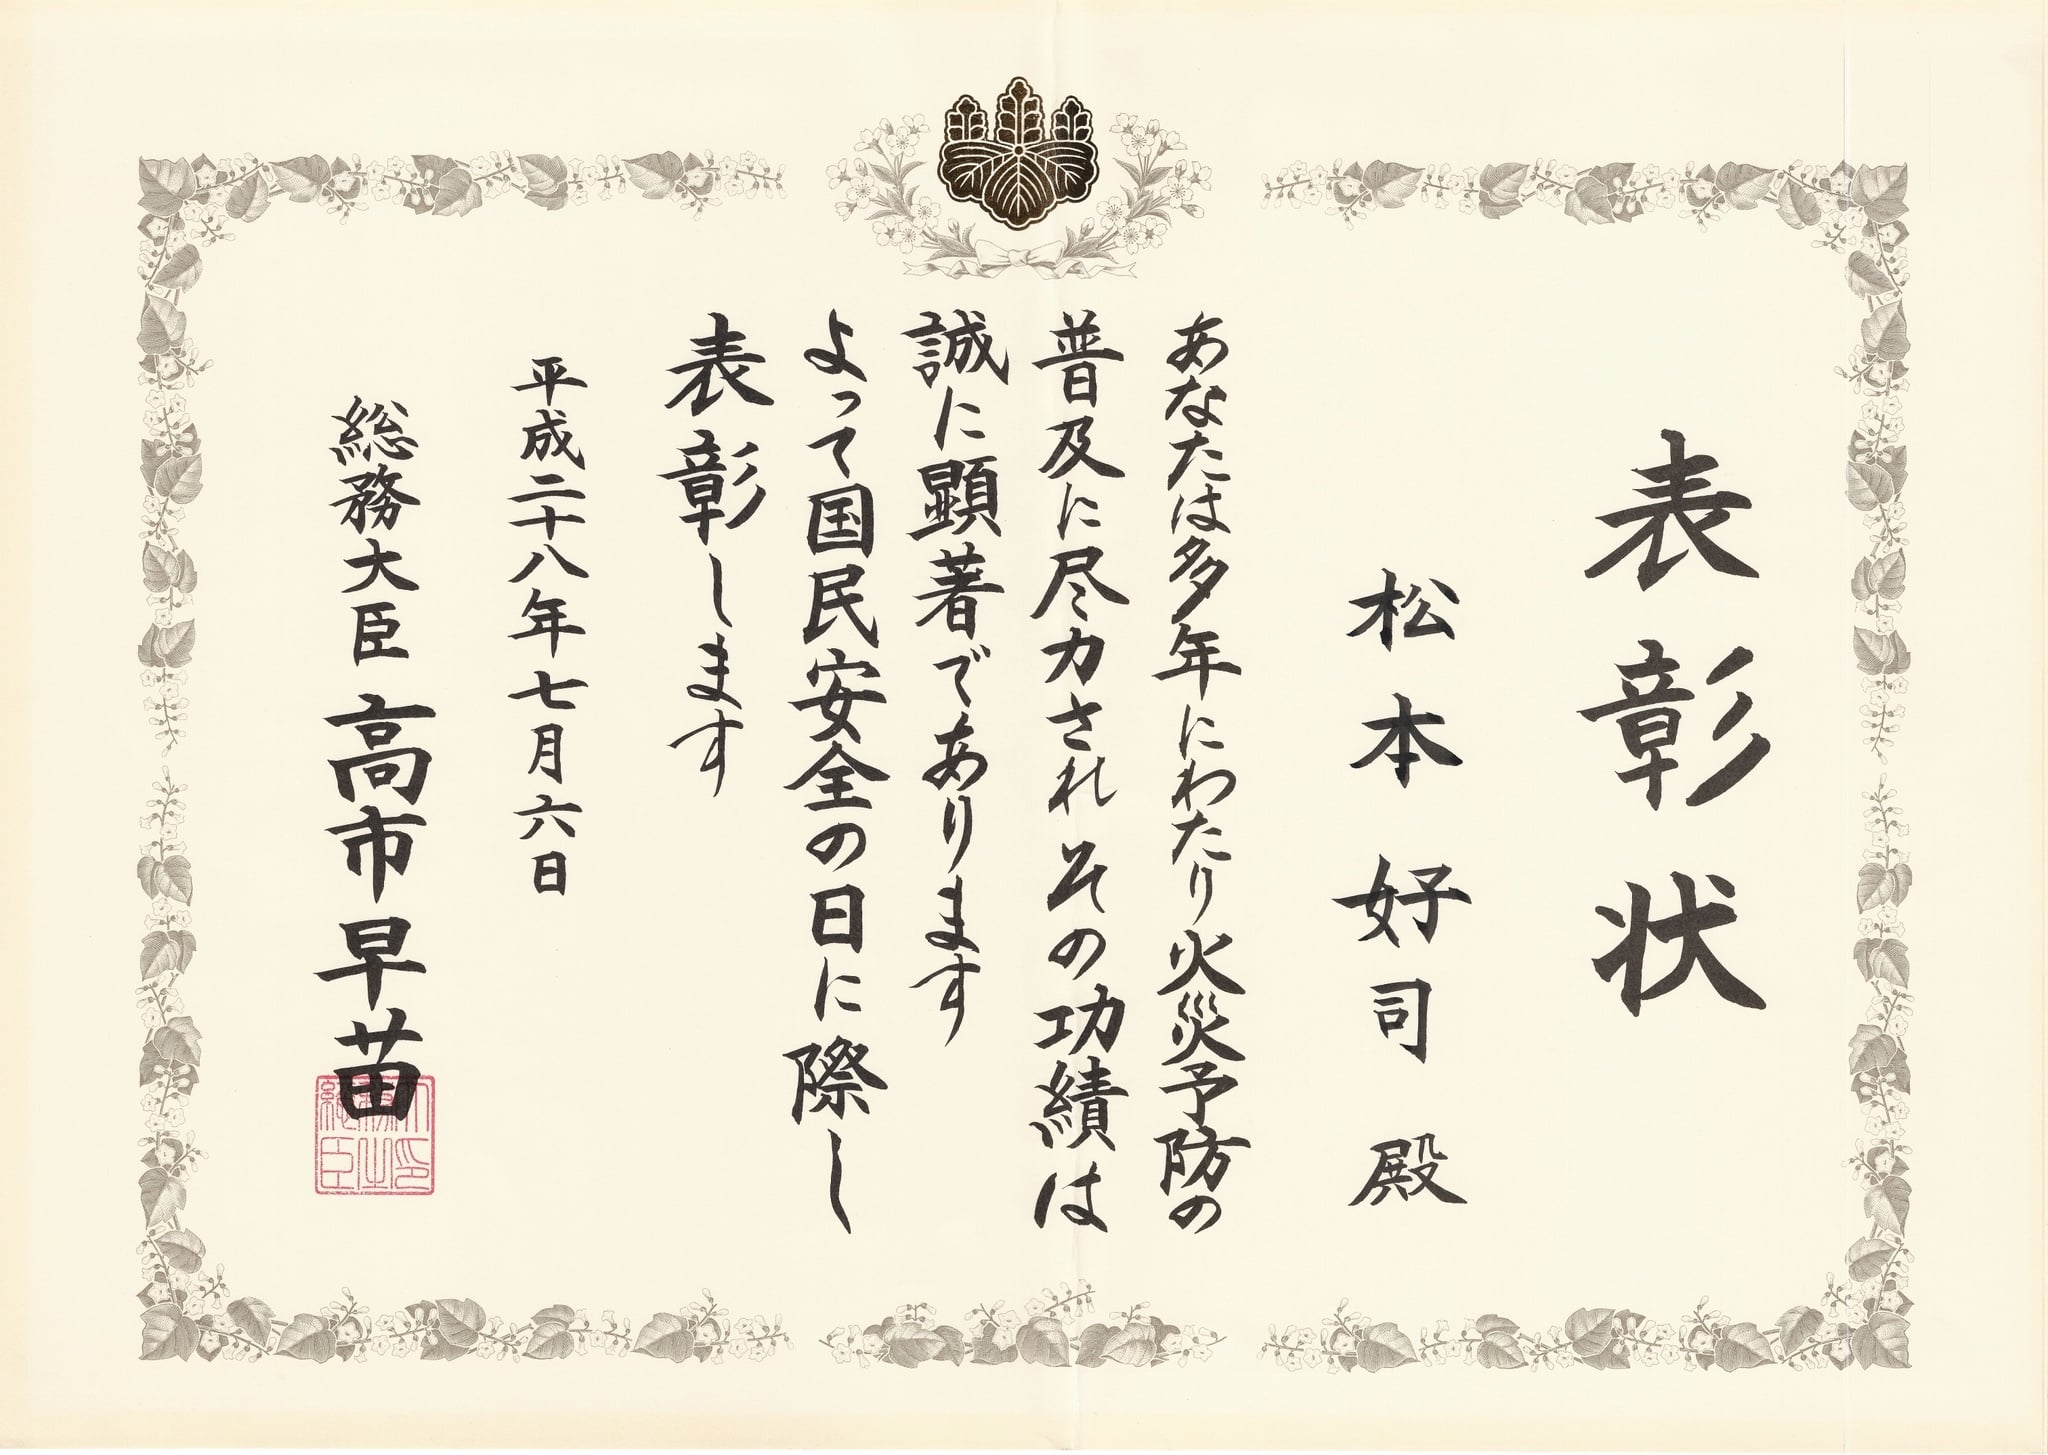 表彰状
松本好司殿
あなたは多年にわたり火災予防の
普及に尽力されその功績は
誠に顕著であります
よって国民安全の日に際し
表彰します
平成二十八年七月六日
総務大臣 高市早苗
総務大臣之印